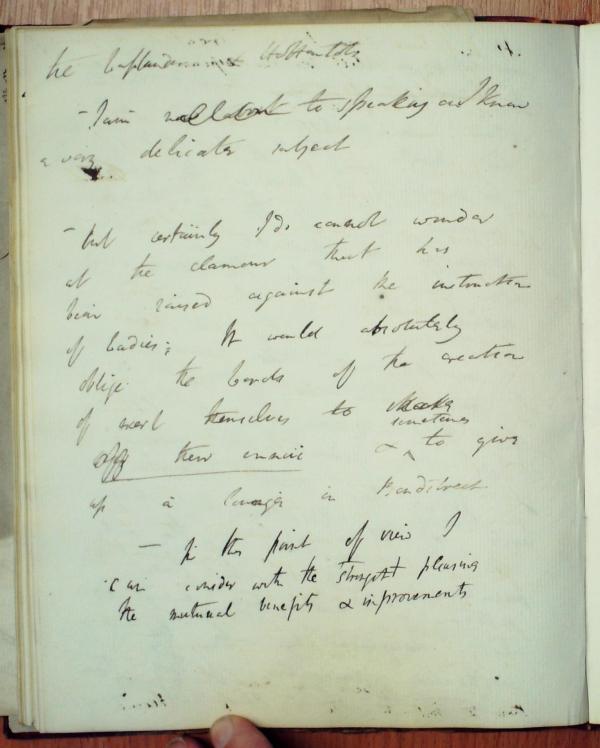 the Laplanders & Hottentots
- I am not about to speaking on I know
a very delicate subject
- but certainly I do cannot wonder
at the clamour that has
been raised against the instruction
of Ladies; It would absolutely
oblige the Lords of the creation
of exert themselves to shake
sometimes
off their ennui & ^ to give
up a lounge in Bondstreet
- In this point of view I
can consider with the strongest pleasure
the mutual benefits & improvements